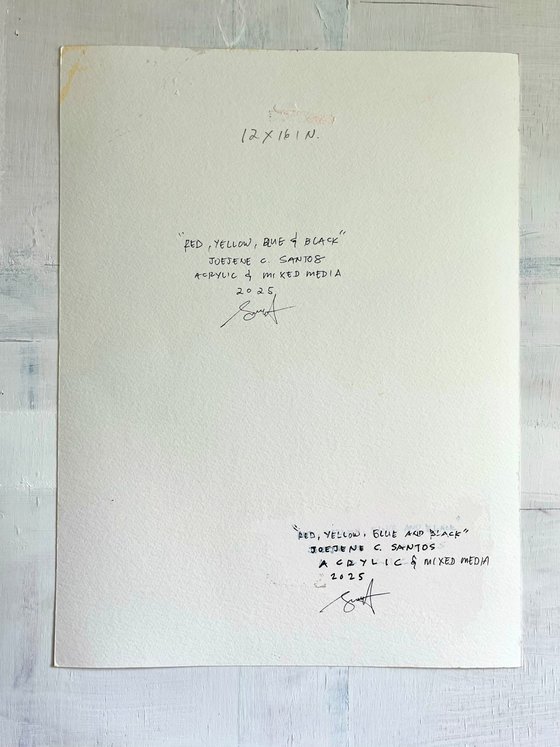 12 X 16 IN.
"RED, YELLOW, BLUE & BLACK"
JOEJENE C. SANTOS
ACRYLIC & MIXED MEDIA
2025
"RED, YELLOW, BLUE AND BLACK"
JOEJENE C. SANTOS
ACRYLIC & MIXED MEDIA
2025